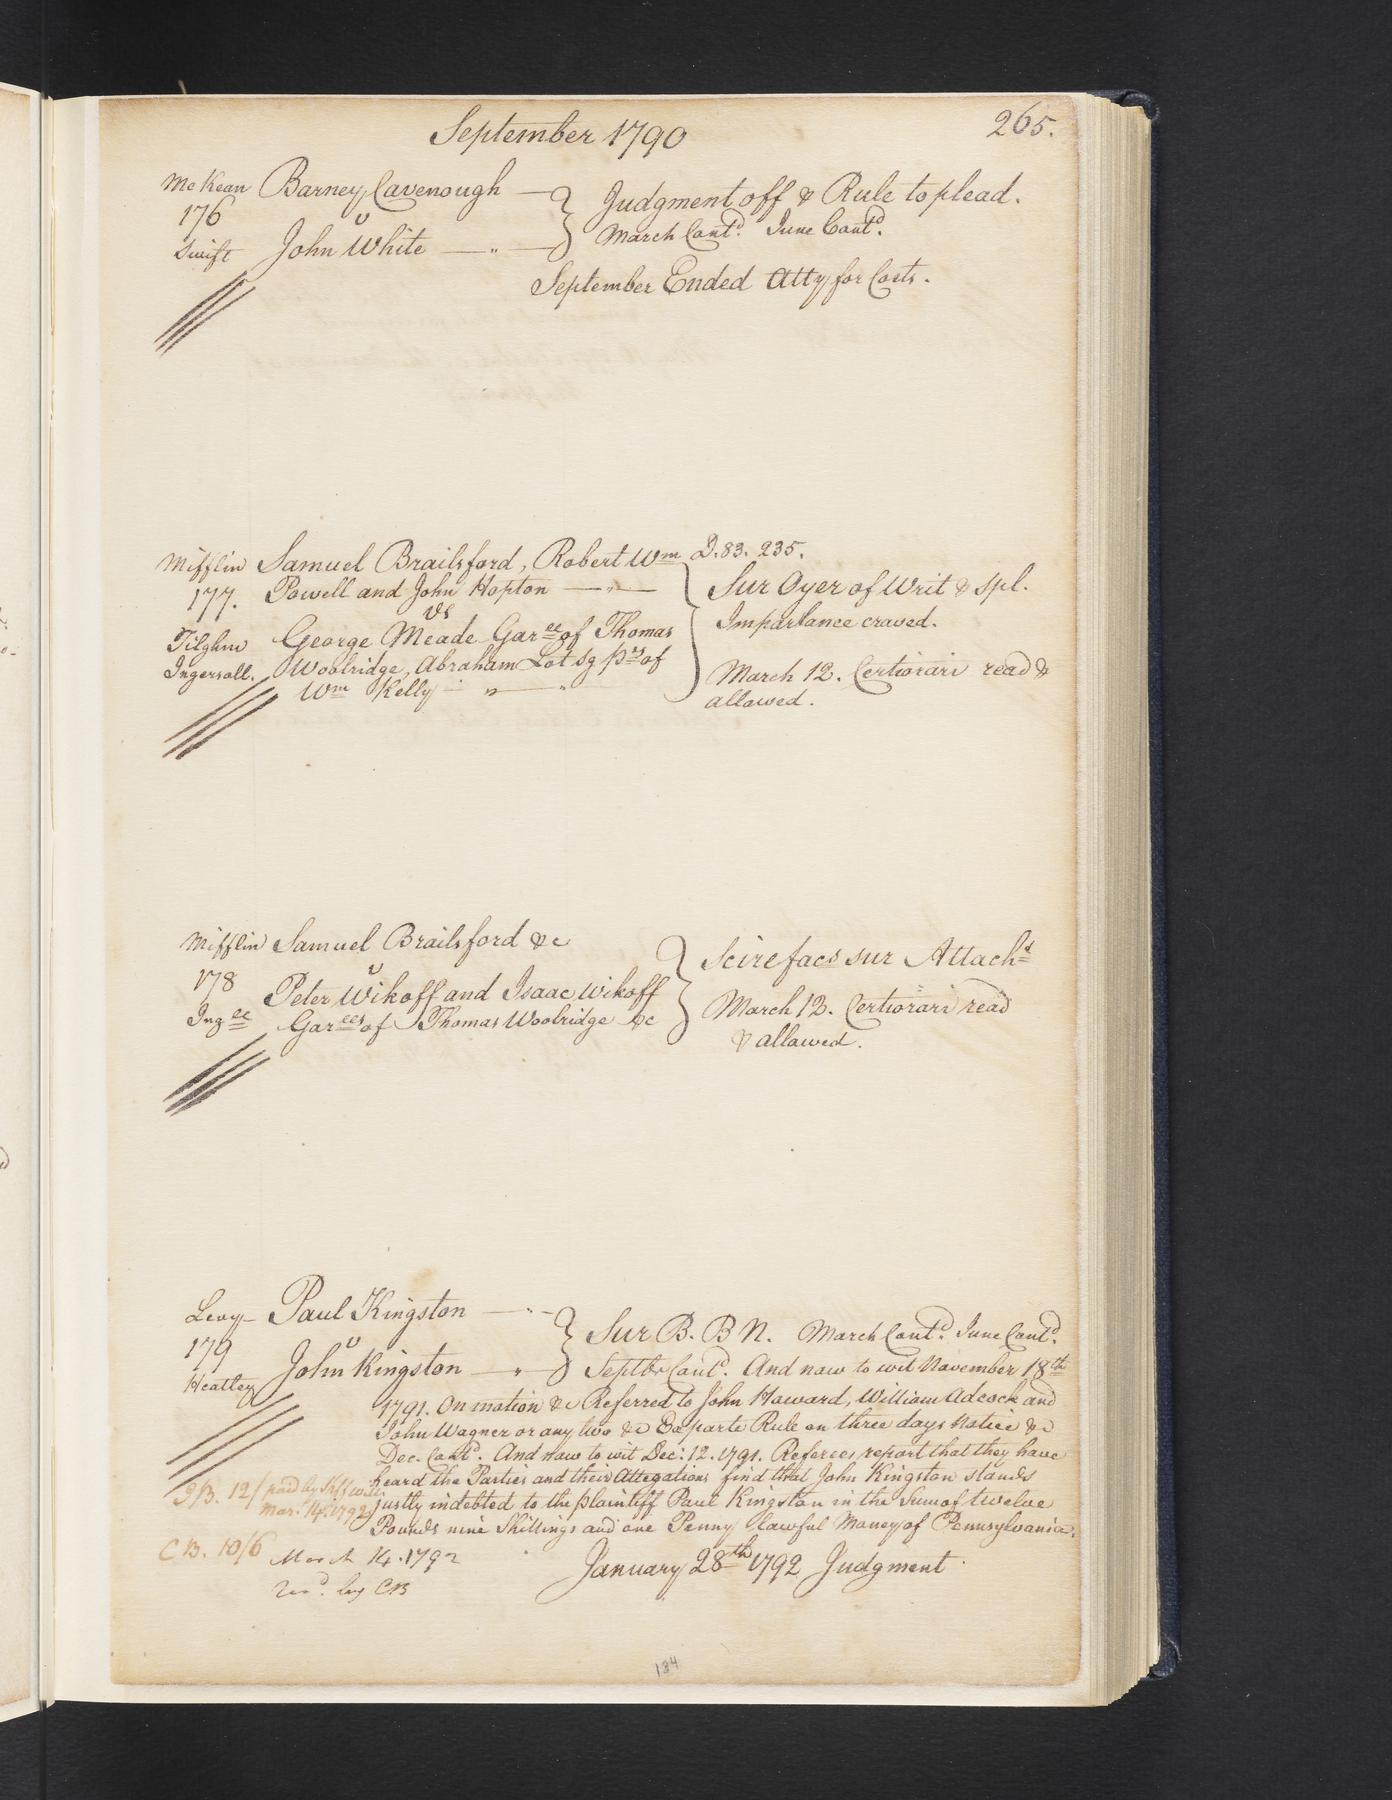 September 1790
265.
McKean Barney Cavenough
176 v
Swift John White
Judgment off & Rule to plead.
March Contd. June Contd.
September Ended Atty for Costs.
Mifflin Samuel Brailsford, Robert Wm
177. Powell and John Hopton
vs
Tilghm George Meade Garee of Thomas
Ingersoll. Woolridge, Abraham Lot sg prs of
Wm Kelly
D. 83. 235.
Sur Oyer of Writ & spl.
Imparlance craved.
March 12. Certiorari read &
allowed.
Mifflin Samuel Brailsford &c
178 v
Peter Wikoff and Isaac Wikoff
Ingee Garees of Thomas Woolridge &c
Scire facs sur Attacht
March 12. Certiorari read
& allowed.
Levy Paul Kingston
179 v
Heatley John Kingston
Sur B. B N. March Contd. June Contd.
Septbr Contd. And now to wit November 18th
1791. On motion &c Referred to John Haward, William Adcock and
John Wagner or any two &c Exparte Rule on three days Notice &c
Dec. Contd. And now to wit Dec: 12. 1791. Referees report that they have
heard the Parties and their Allegations find that John Kingston stands
justly indebted to the plaintiff Paul Kingston in the Sum of twelve
Pounds nine Shillings and one Penny lawful Money of Pennsylvania.
January 28th 1792 Judgment
12/ paid by
Mar. 14. 1792
CB. 10/6 March 14. 1792
recd. by CB
134